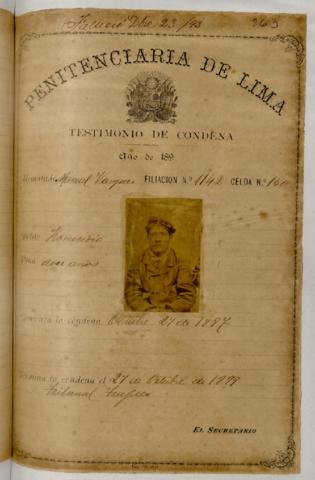 Falleció Dbre 23/93
263
PENITENCIARIA DE LIMA
TESTIMONIO DE CONDENA
Año de 189
Manuel Vargas FILIACION N.º 1142 CELDA N.º 160
Homicidio
Pena doce años
la condena Octubre 27 de 1887
la condena el 27 de Octubre de 1899
Tribunal
EL SECRETARIO